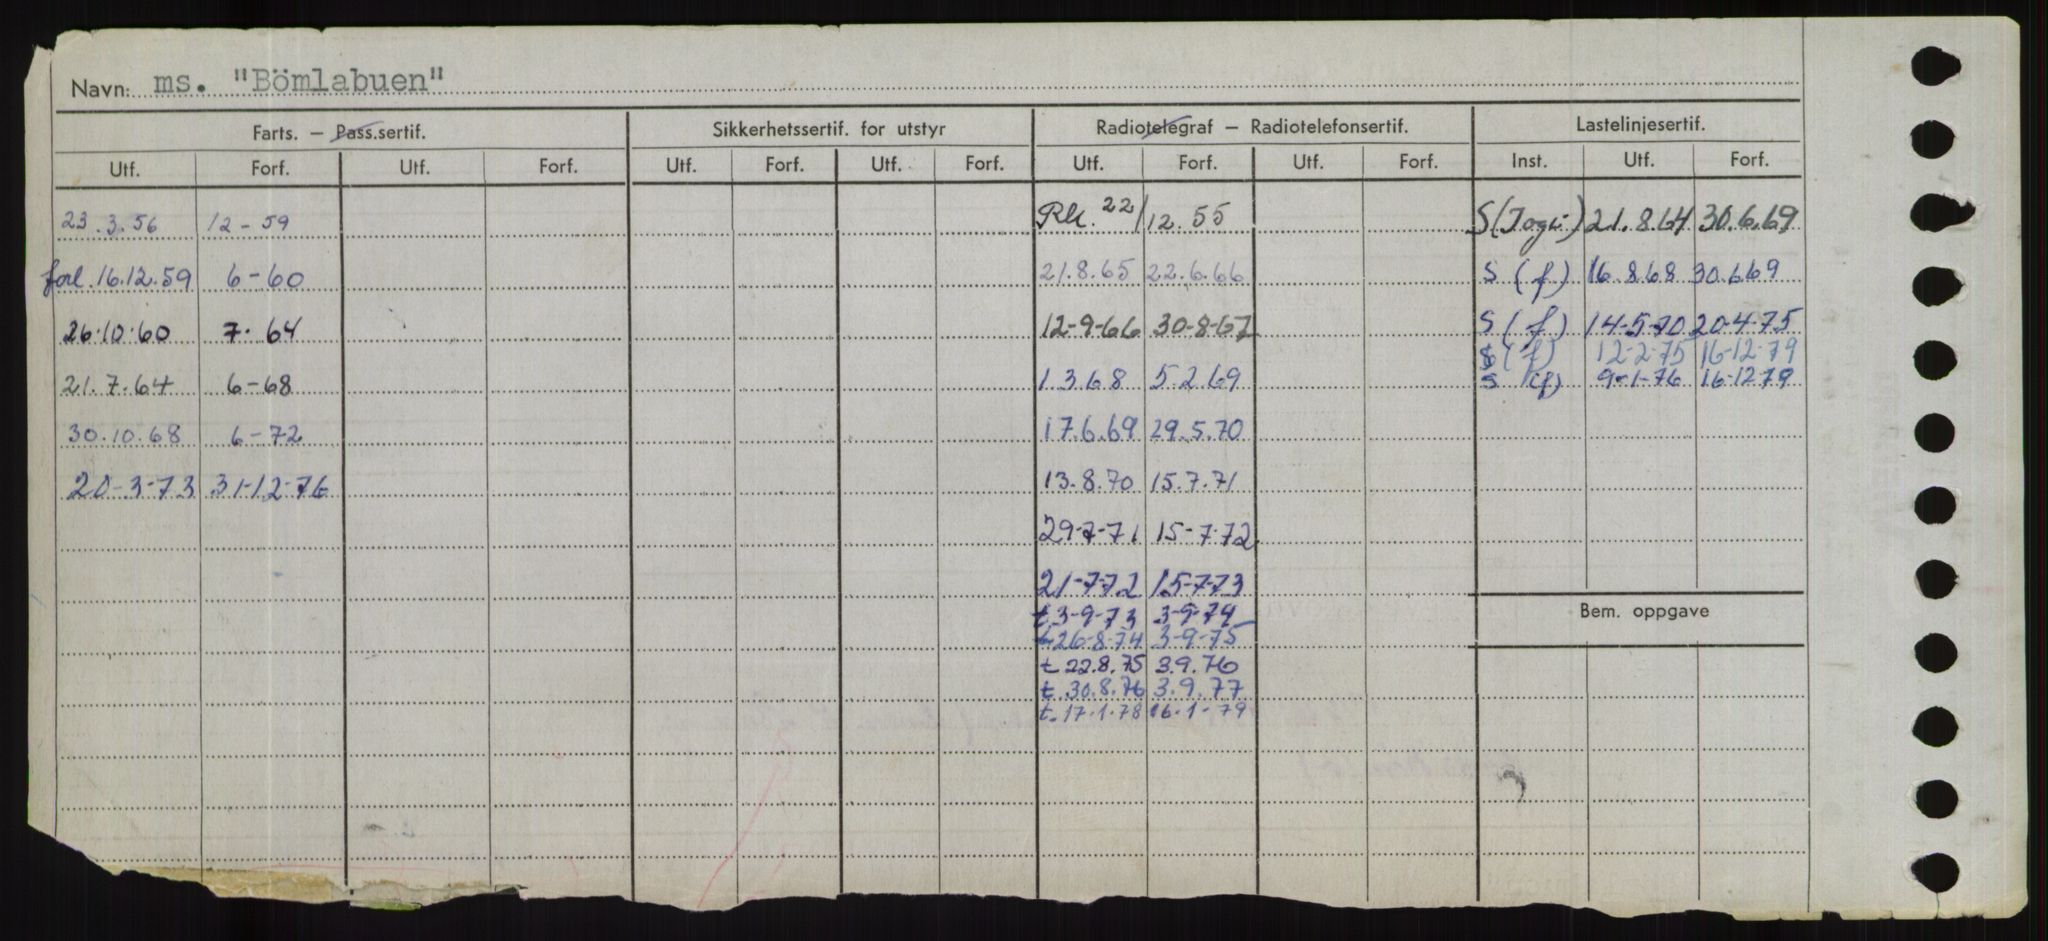 Navn: ms. "Bömlabuen"
Farts. — Pass.sertif. Sikkerhetssertif. for utstyr Radiotelegraf — Radiotelefonsertif. Lastelinjesertif.
Utf. Forf. Utf. Forf. Utf. Forf. Utf. Forf. Utf. Forf. Utf. Forf. Inst. Utf. Forf.
23.3.56 12-59 22/12.55 21.8.64 30.6.69
forl. 16.12.59 6-60 21.8.65 22.6.66 S (f) 16.8.68 30.6.69
26.10.60 7.64 12-9-66 30-8-67 S (f) 14-5-70 20-4-75
S (f) 12-2-75 16-12-79
21.7.64 6-68 1.3.68 5.2.69 S (f) 9-1-76 16-12.79
30.10.68 6-72 17.6.69 29.5.70
20-3-73 31-12-76 13.8.70 15.7.71
29-7-71 15-7-72
21-7-72 15-7-73
t 3-9-73 3-9-74 Bem. oppgave
t 26-8-74 3-9-75
t 22.8.75 3.9.76
t 30.8.76 3.9.77
t. 17.1.78 16.1-79